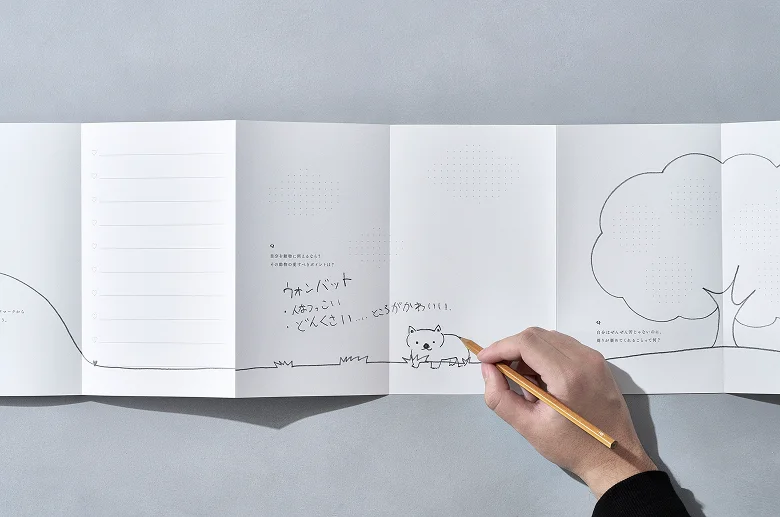 自分を動物に例えるなら?
その動物の愛すべきポイントは?
ウォンバット
・人なつっこい
・どんくさい....ところがかわいい.
自分はぜんぜん苦じゃないのに、
周りが褒めてくれることって何?